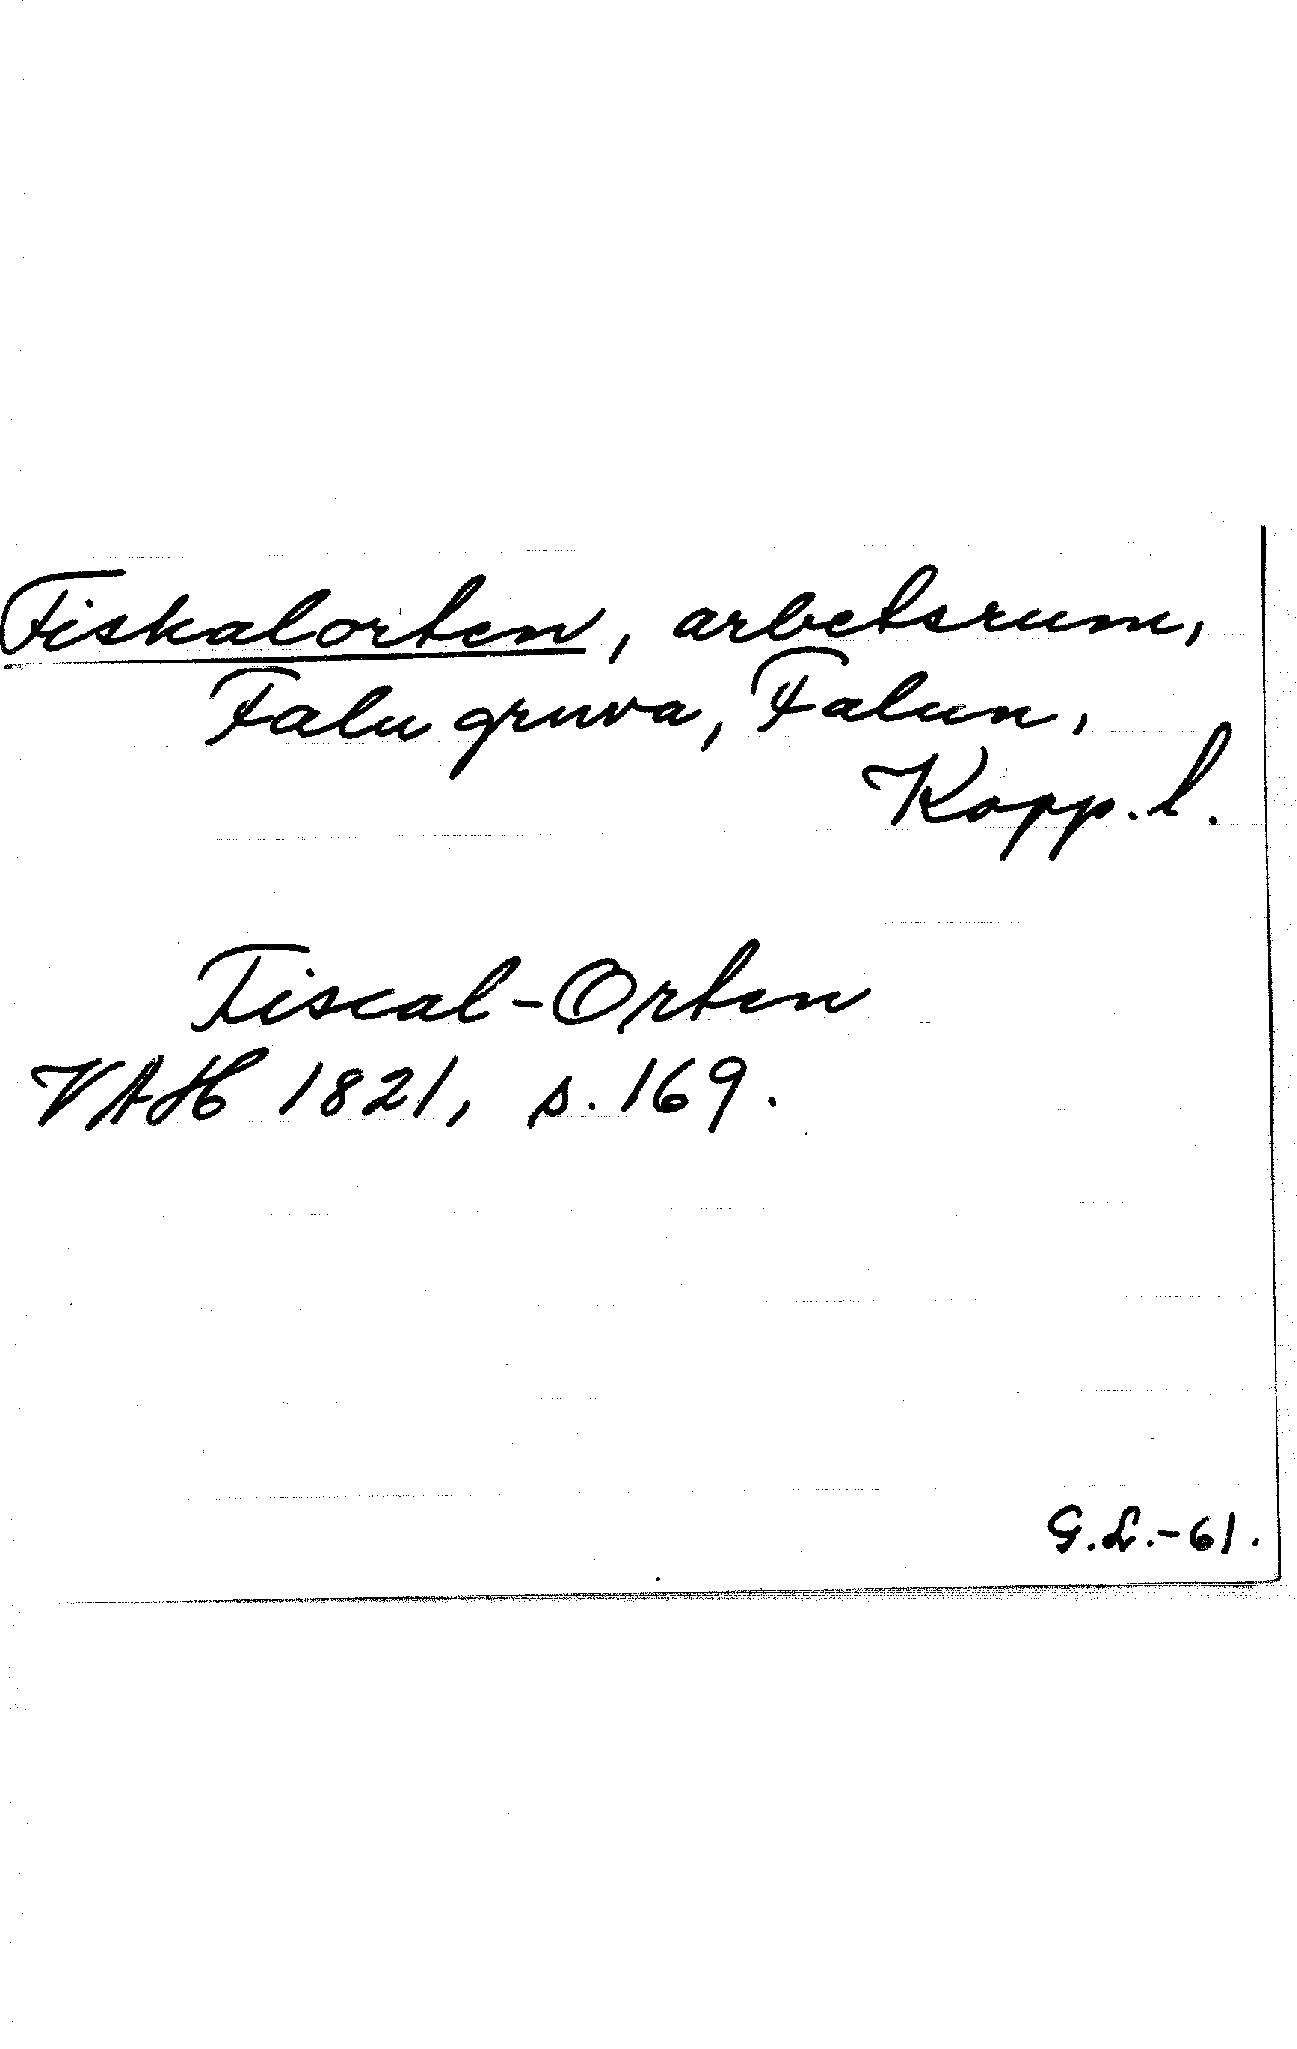 Fiskalorten, arbetsrum,
Falu gruva, Falun,
Kopp. l.
Fiscal-Orten
VAH 1821, s. 169.
G.L.-61.